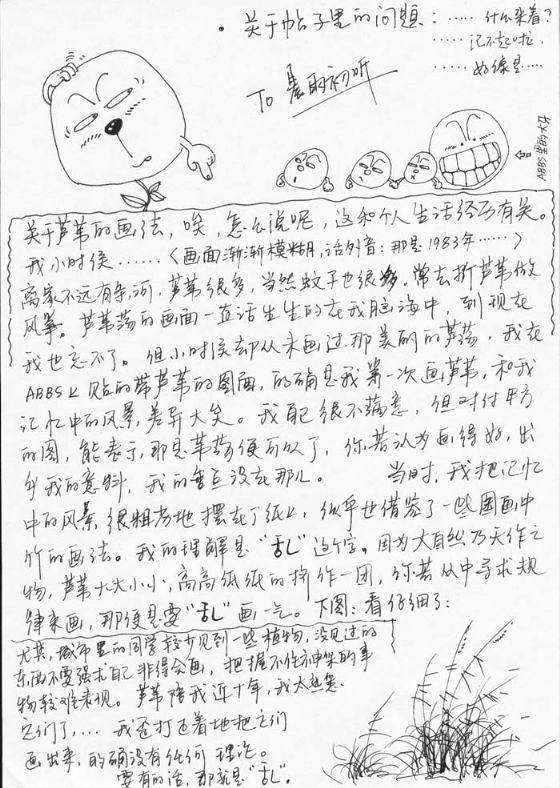 • 关于帖子里的问题：
…… 什么来着？
…… 记不起啦，
…… 好像是…
To 晨的初听
ABBS
关于芦苇的画法，唉，怎么说呢，这和个人生活经历有关。
我小时候……〈画面渐渐模糊，话外音：那是1983年……〉
离家不远有条河，芦苇很多，当然蚊子也很多。常去折芦苇做
风筝。芦苇荡的画面一直活生生的在我脑海中，到现在
我也忘不了。但小时候却从未画过那美丽的芦荡，我在
ABBS上贴的带芦苇的图画，的确是我第一次画芦苇，和我
记忆中的风景差异大矣。我自己很不满意，但对付甲方
的图，能表示那是苇荡便可以了，你若认为画得好，出
乎我的意料，我的重点没在那儿。 当时，我把记忆
中的风景很粗劣地摆在了纸上，似乎也借鉴了一些国画中
竹的画法。我的理解是“乱”这个字。因为大自然乃天作之
物，芦苇大大小小，高高低低的挤作一团，你若从中寻求规
律来画，那便是要“乱”画一气。下图：看仔细了：
尤其，城市里的同学较少见到一些植物，没见过的
东西不要强求自己非得会画，把握不住神保的事
物较难表现。芦苇陪我近十年，我太想念
它们了，… 我歪打正着地把它们
画出来，的确没有任何理论。
要有的话，那就是“乱”。